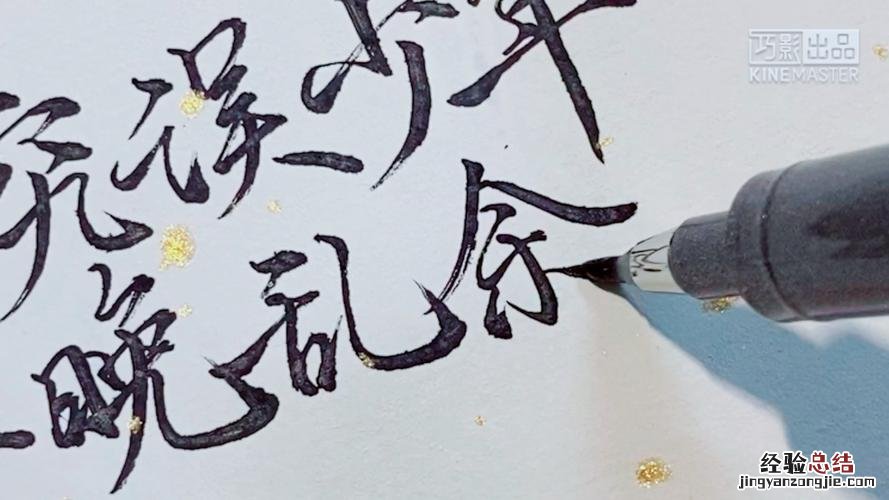 巧影出品
KINEMASTER
误一少年
一晚乱余
经验总结
jingyanzongjie.com